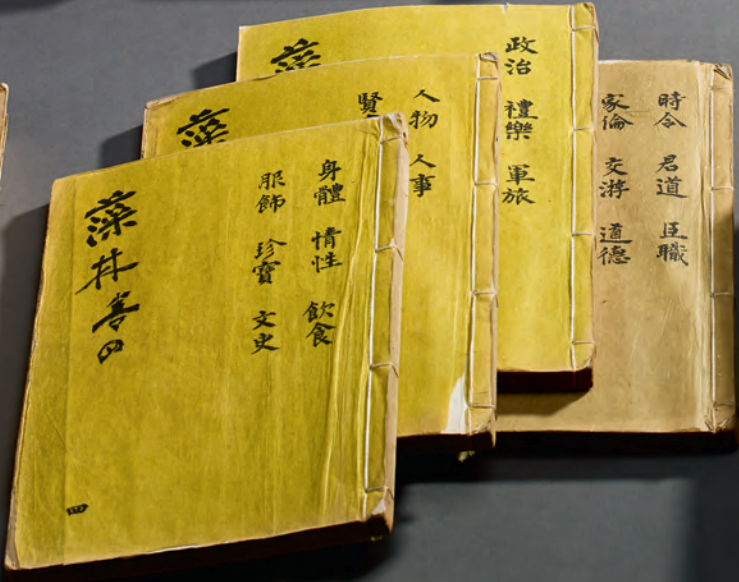 時令 君道 臣職
家倫 交游 道德
政治 禮樂 軍旅
藻
人物 人事
賢
藻
身體 情性 飲食
服飾 珍寶 文史
藻林
四